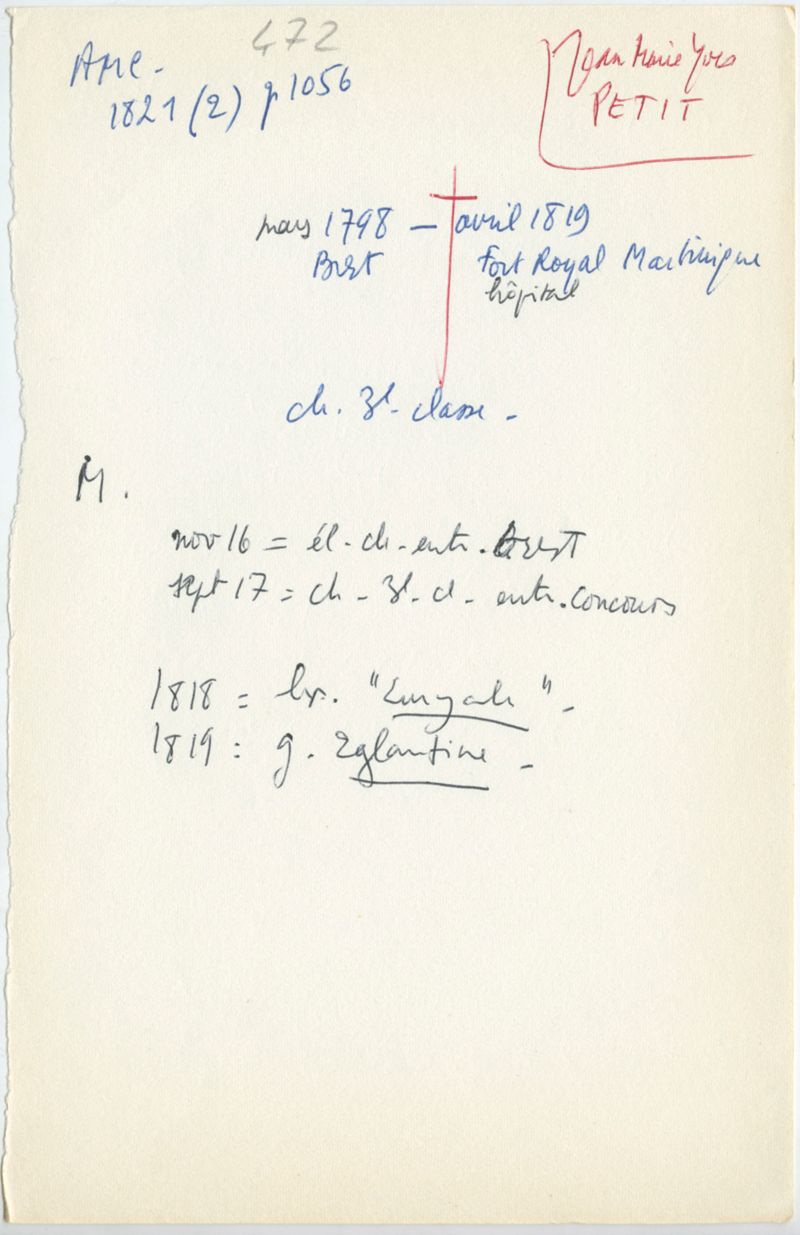 472
AMC -
1821 (2) p 1056
Jean Marie Yves
PETIT
mars 1798 — avril 1819
Brest Fort Royal Martinique
hôpital
ch. 3e classe -
M.
nov 16 = él - ch - entr. Brest
sept 17 = ch - 3e cl - entr. Concours
1818 = "Euryale" -
1819 : g. Eglantine -